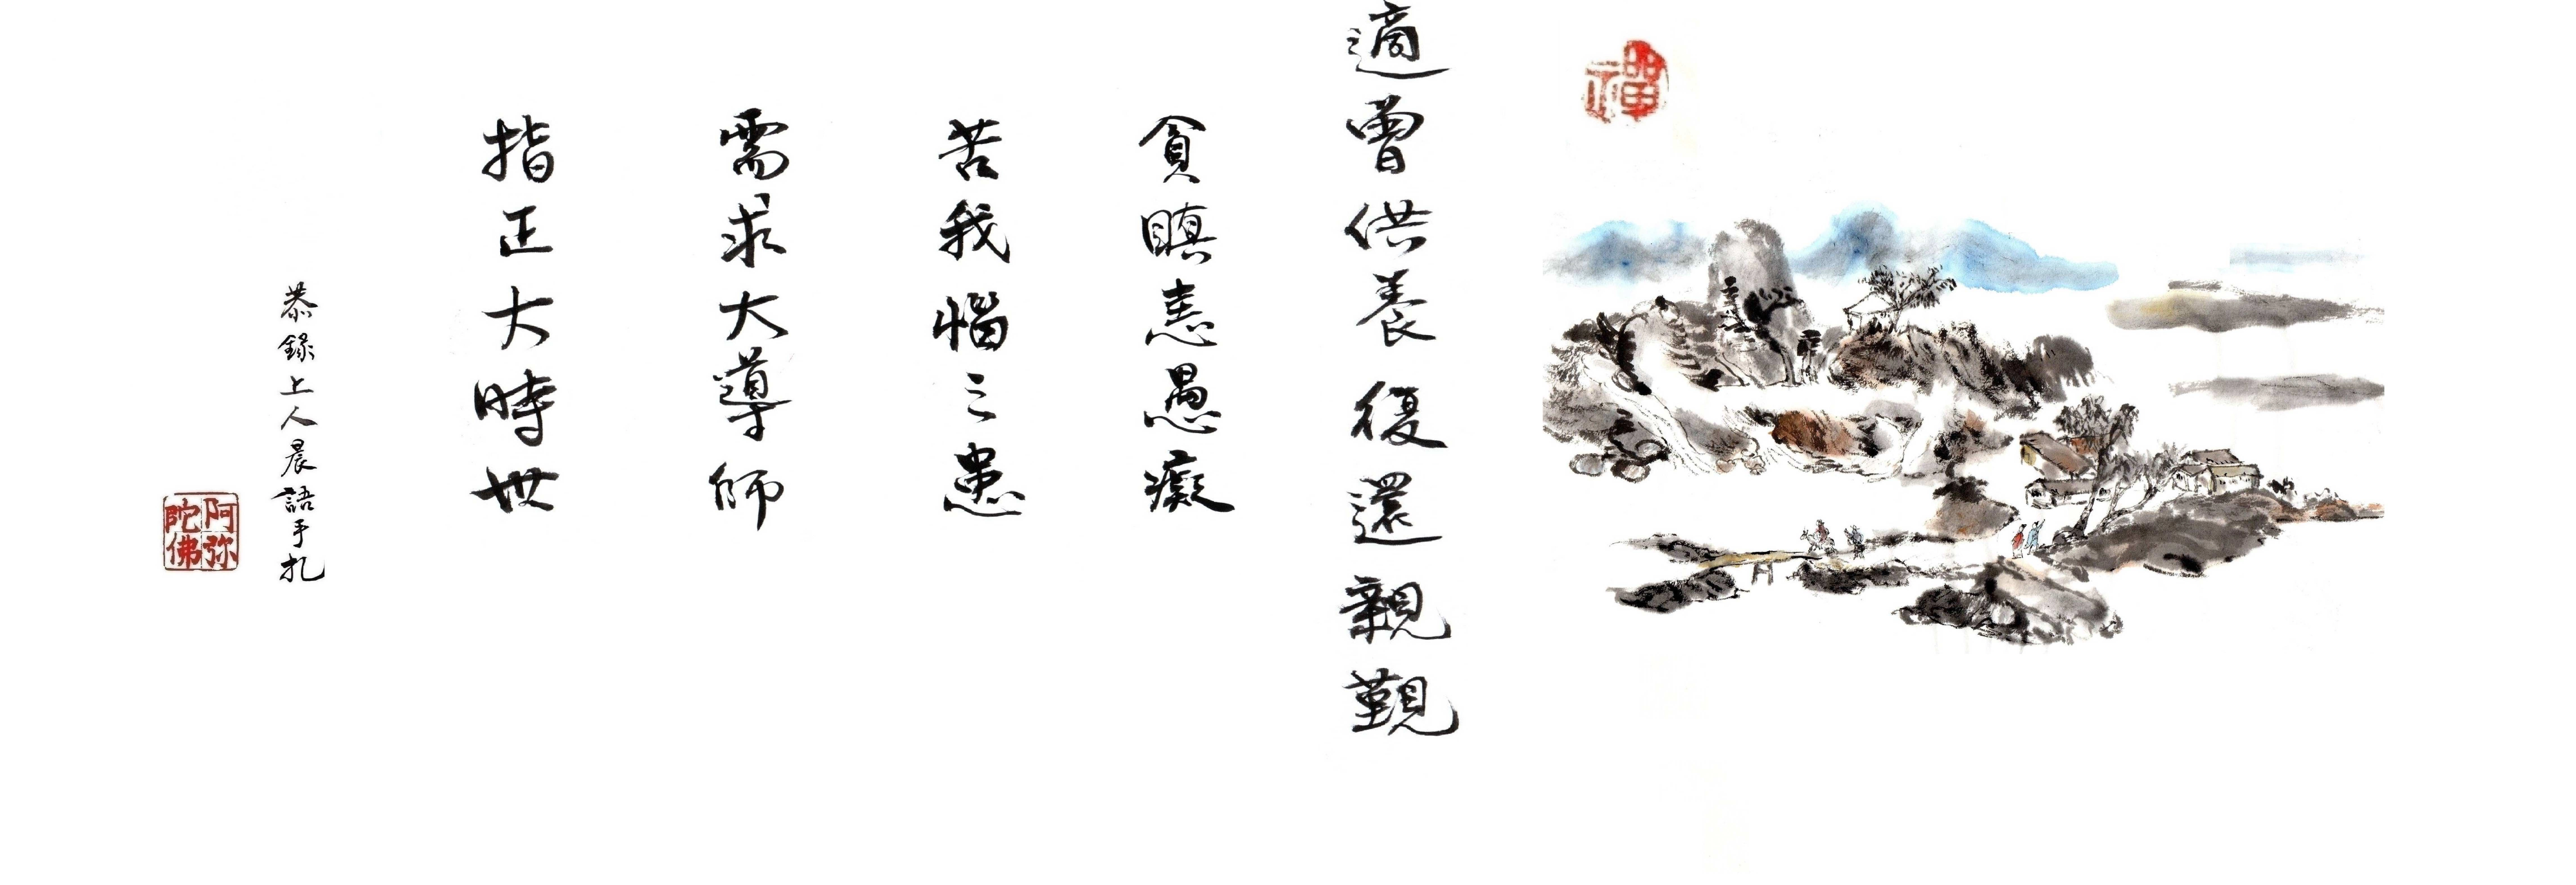 禪
適曾供養復還親覲
貪瞋恚愚癡
苦我惱之患
需求大導師
指正大時世
恭錄上人晨語手札
阿弥陀佛